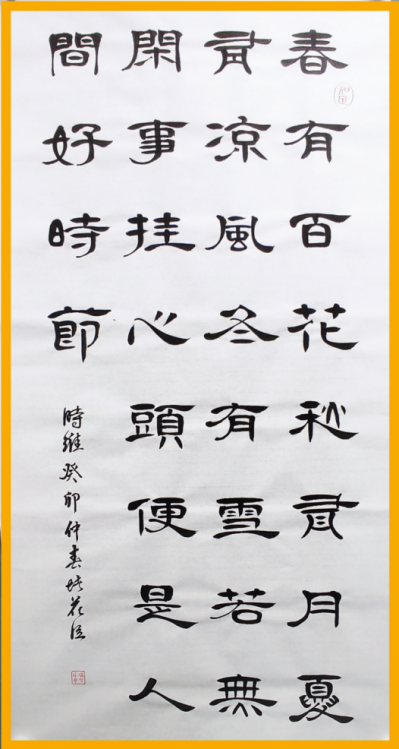 春有百花秋有月夏
有凉風冬有雪若無
閑事挂心頭便是人
間好時節
時維癸卯仲春